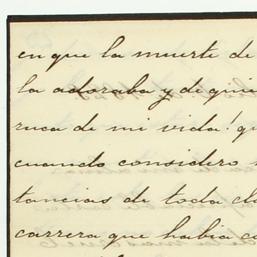 en que la muerte de
la adoraba y de quie
ruca de mi vida! q
cuando considero
tancias de toda cla
carrera que habia c